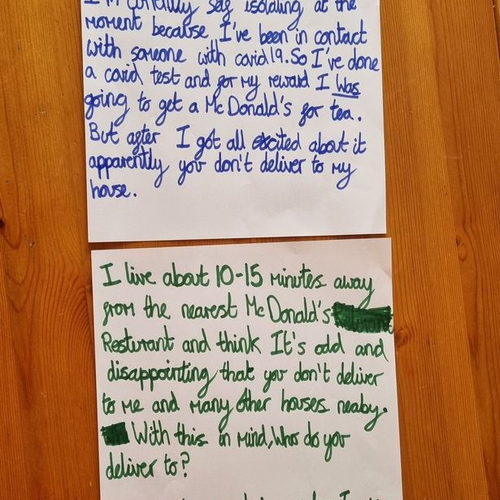 I'm currently self isolating at the
moment because, I've been in contact
with someone with covid 19. So I've done
a covid test and for my reward I was
going to get a McDonald's for tea.
But after I got all excited about it
apparently you don't deliver to my
house.
I live about 10-15 minutes away
from the nearest McDonald's
Resturant and think It's odd and
disappointing that you don't deliver
to me and many other houses neaby.
With this in mind, Who do you
deliver to?